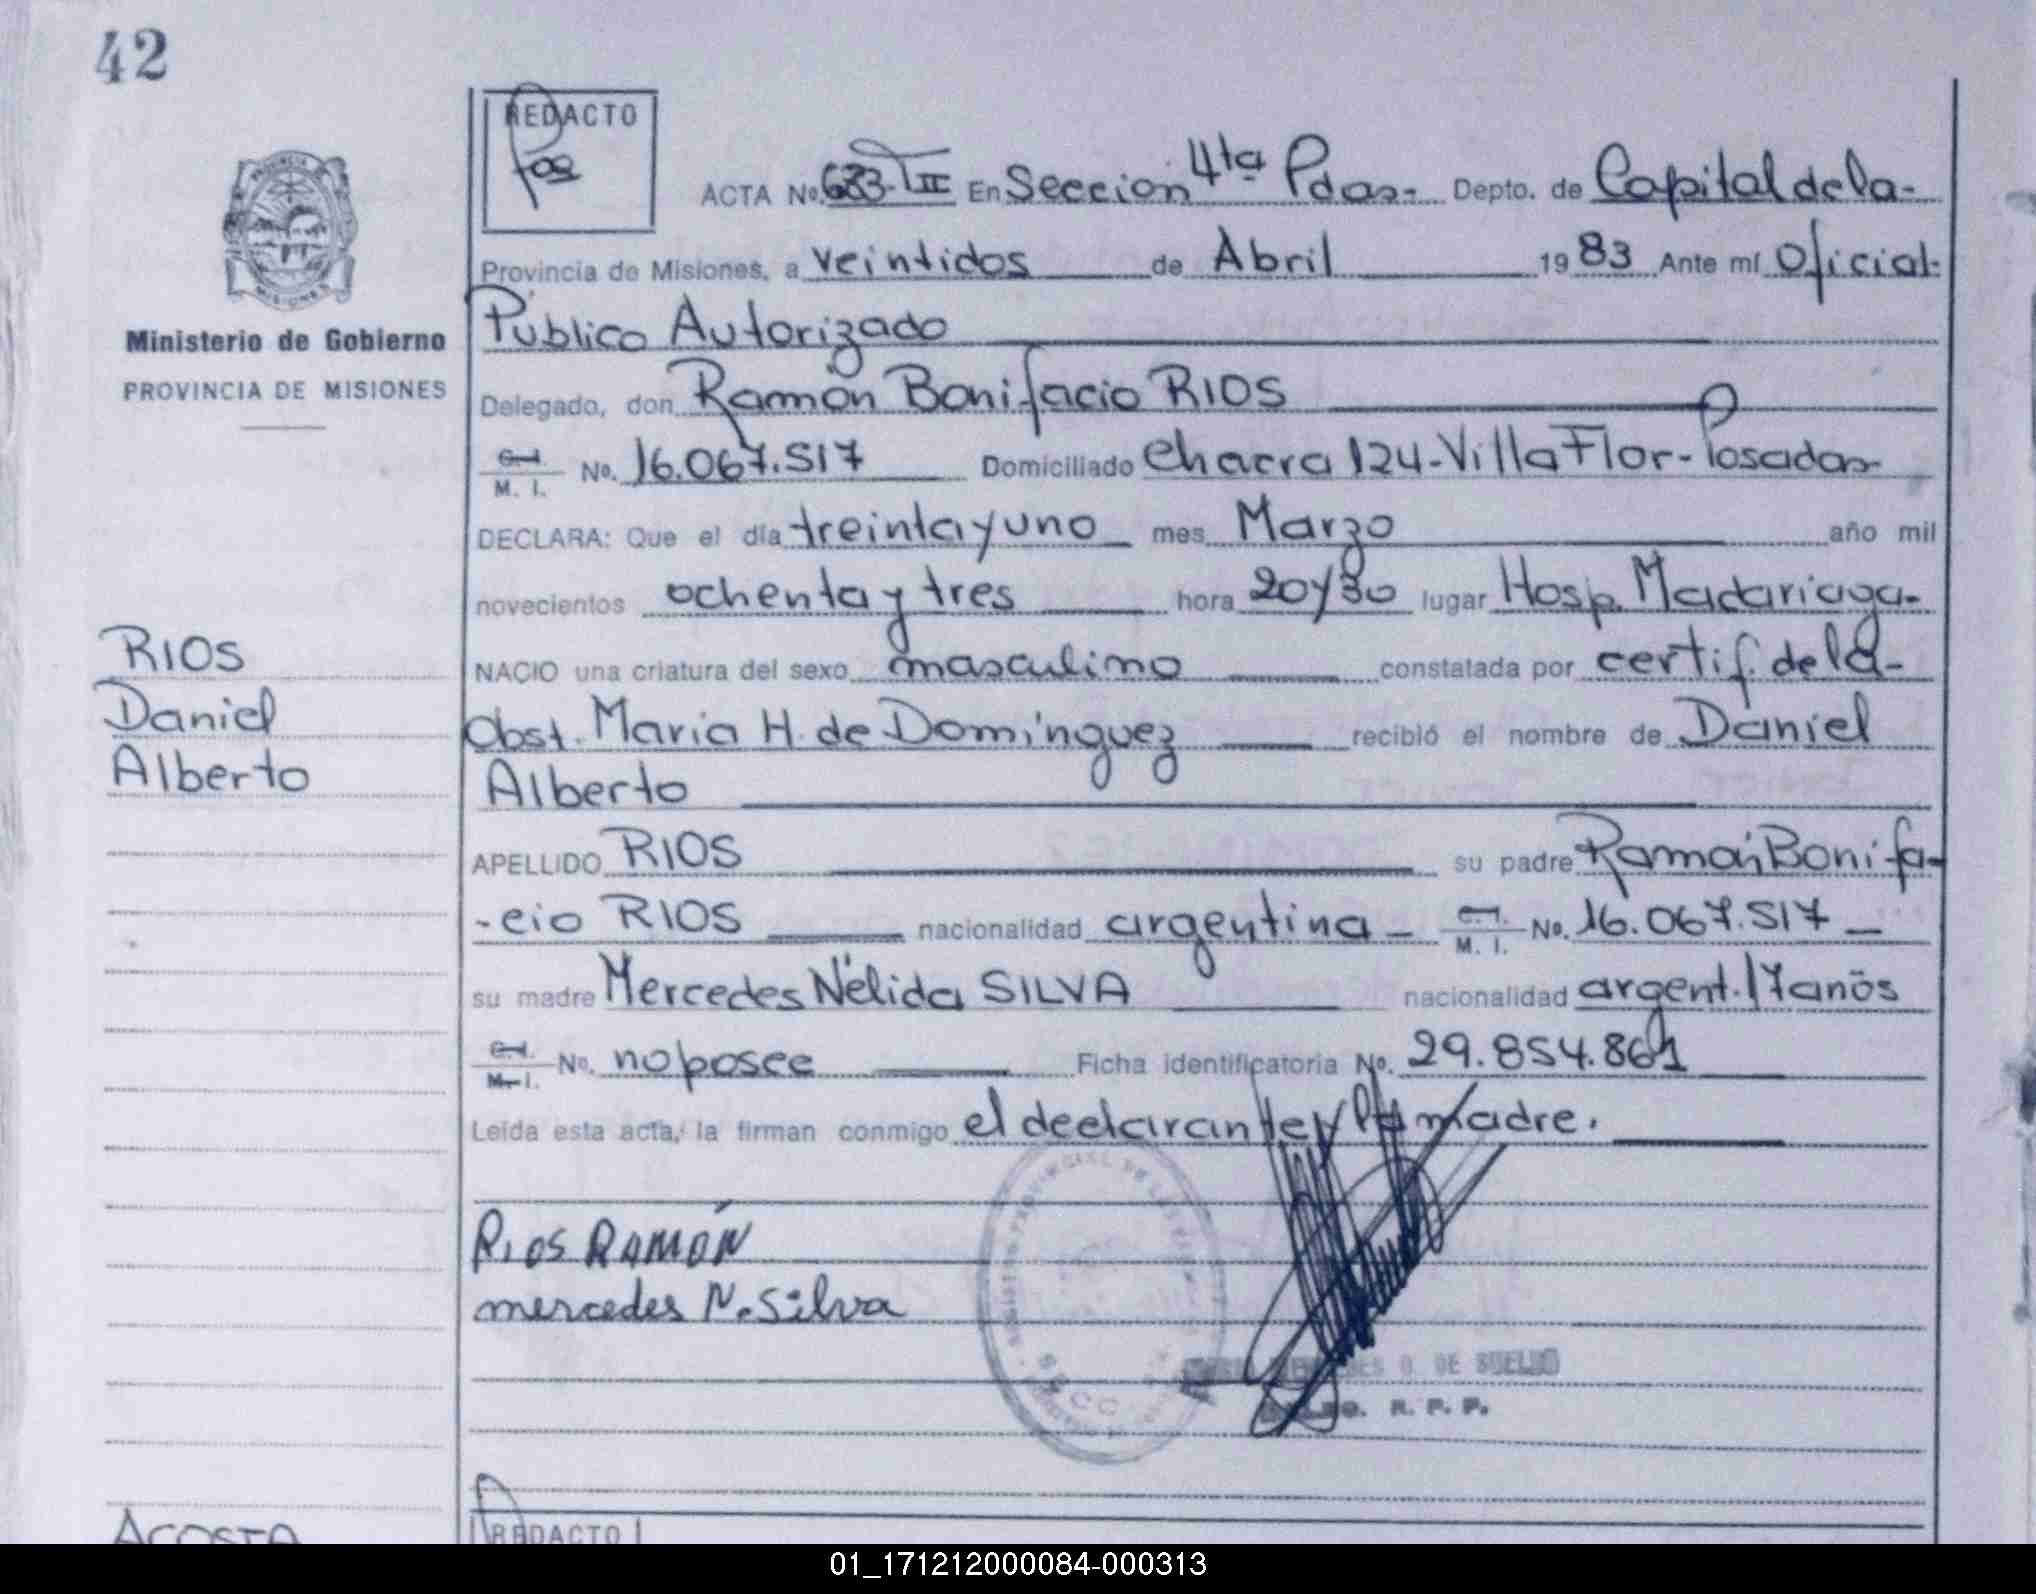 42
REDACTO
ACTA No. 683-TII En Seccion 4ta Pdas- Depto. de Capital de la-
Provincia de Misiones, a veintidos de Abril 1983 Ante mí Oficial-
Público Autorizado
Ministerio de Gobierno
PROVINCIA DE MISIONES
Delegado, don Ramón Bonifacio RIOS
C.I. M. I. No. 16.067.517 Domiciliado Chacra 124-Villa Flor-Posadas
DECLARA: Que el día treinta y uno mes Marzo año mil
novecientos ochenta y tres hora 20y30 lugar Hosp. Madariaga-
RIOS
Daniel
Alberto
NACIO una criatura del sexo masculino constatada por certif. de la-
Obst. Maria H. de Domínguez recibió el nombre de Daniel
Alberto
APELLIDO RIOS su padre Ramón Bonifa-
-cio RIOS nacionalidad argentina- C.I. M. I. No. 16.067.517-
su madre Mercedes Nélida SILVA nacionalidad argent./17anõs
C.I. M. I. No. no posee Ficha identificatoria No. 29.854.861
Leída esta acta, la firman conmigo el declarante y la madre.
RIOS RAMÓN
mercedes N. Silva
DE
R. P. P.
ACOSTA
REDACTO
01_171212000084-000313